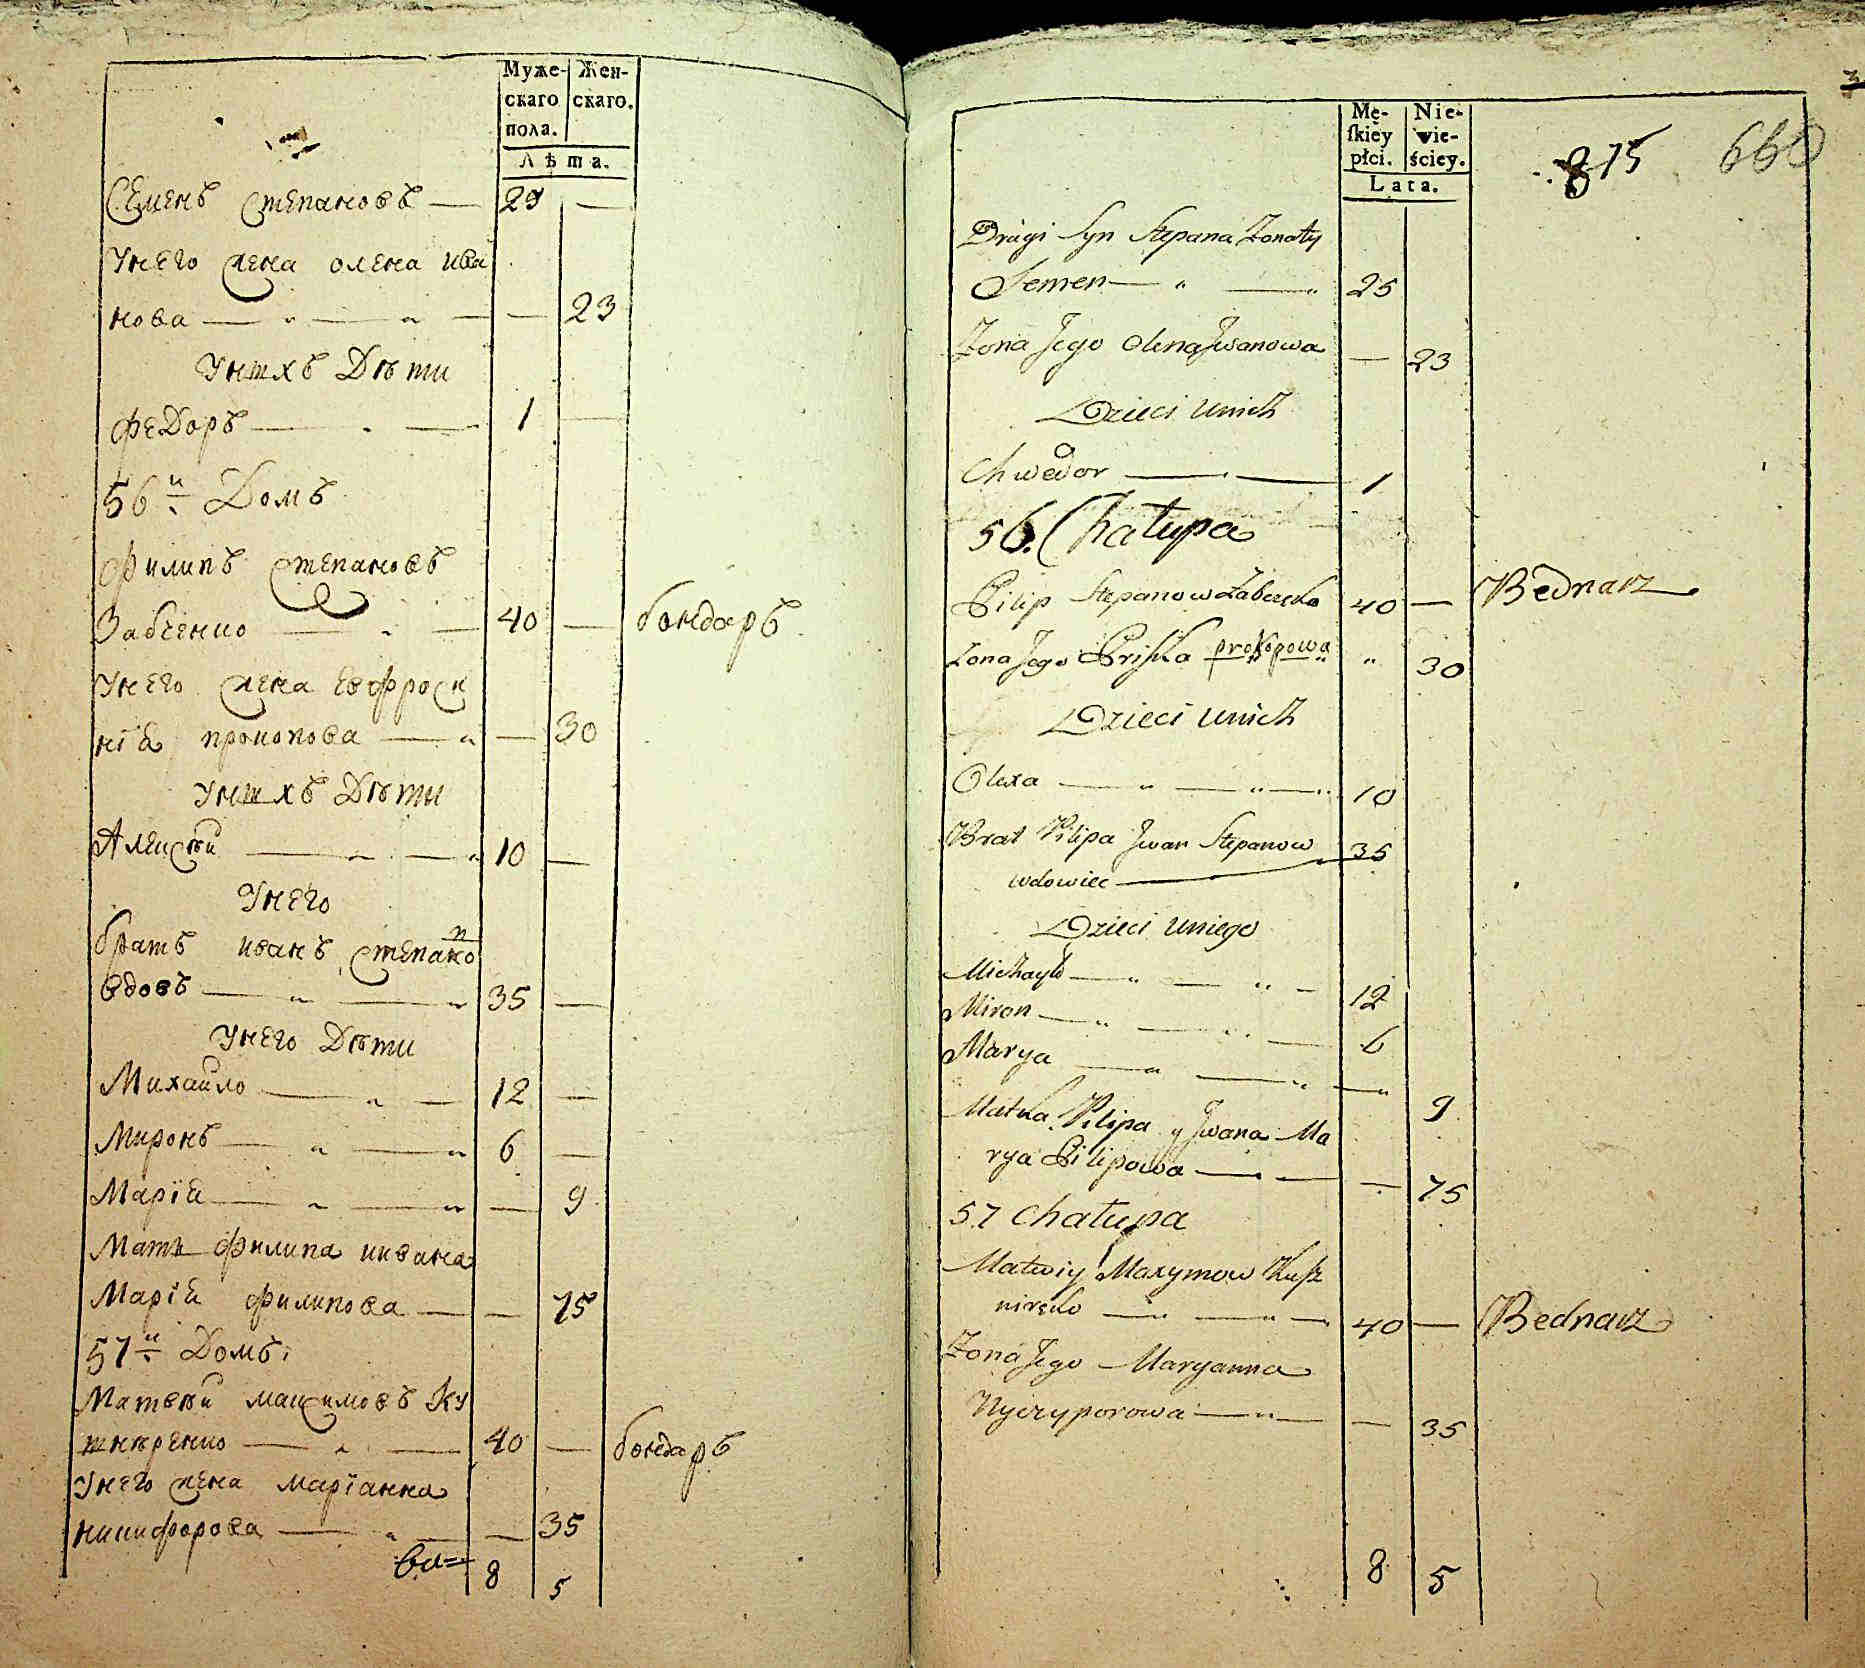 Муже-
скаго
пола.
Жен-
скаго.
Лѣта.
Семенъ Степановъ — 29 —
Унего жена олена ива
нова — „ — „ — — 23
Унихъ Дѣти
Федоръ — „ — 1 —
56й Домъ
Филипъ Степановъ
Забенко — „ — 40 — бондаръ
Унего жена Евфроси
нїа прокопова — „ — 30
Унихъ Дѣти
Алексѣй — „ — „ 10 —
Унего
братъ иванъ Степано
вдовъ — „ — „ 35 —
Унего Дѣти
Михайло — „ — 12 —
Миронъ — „ — „ 6 —
Марїа — „ — „ — 9
Мать Филипа иивана
Марїа филипова — — 75
57й Домъ
Матвѣй максимовъ Ку
шнѣренко — „ — 40 — бондаръ
Унего жена марїанна
никифорова — „ — — 35
8 5
Mę-
skiey
płci.
Nie-
wie-
ściey.
Lata.
815
660
Drugi Syn Stepana Zonaty
Semen — „ — „ 25
Zona Jego Olena Jwanowa — 23
Dzieci Unich
Chwedor — 1
56. Chałupa
Pilip Stepanow Zabenko 40 — Bednarz
Zona Jego Priska prokopowa „ 30
Dzieci Unich
Olexa — „ — „ — „ 10
Brat Pilipa Jwan Stepanow 35
wdowiec —
Dzieci Uniego
Michayło — „ — „ — 12
Miron — „ — „ — 6
Marya — „ — „ — „ 9
Matka Pilipa y Jwana Ma
rya Pilipowa — — — 75
57 Chałupa
Matwiy Maxymow Kusz
nirenko — „ — „ — 40 — Bednarz
Zona Jego Maryanna
Nyczyporowa — „ — — 35
8 5